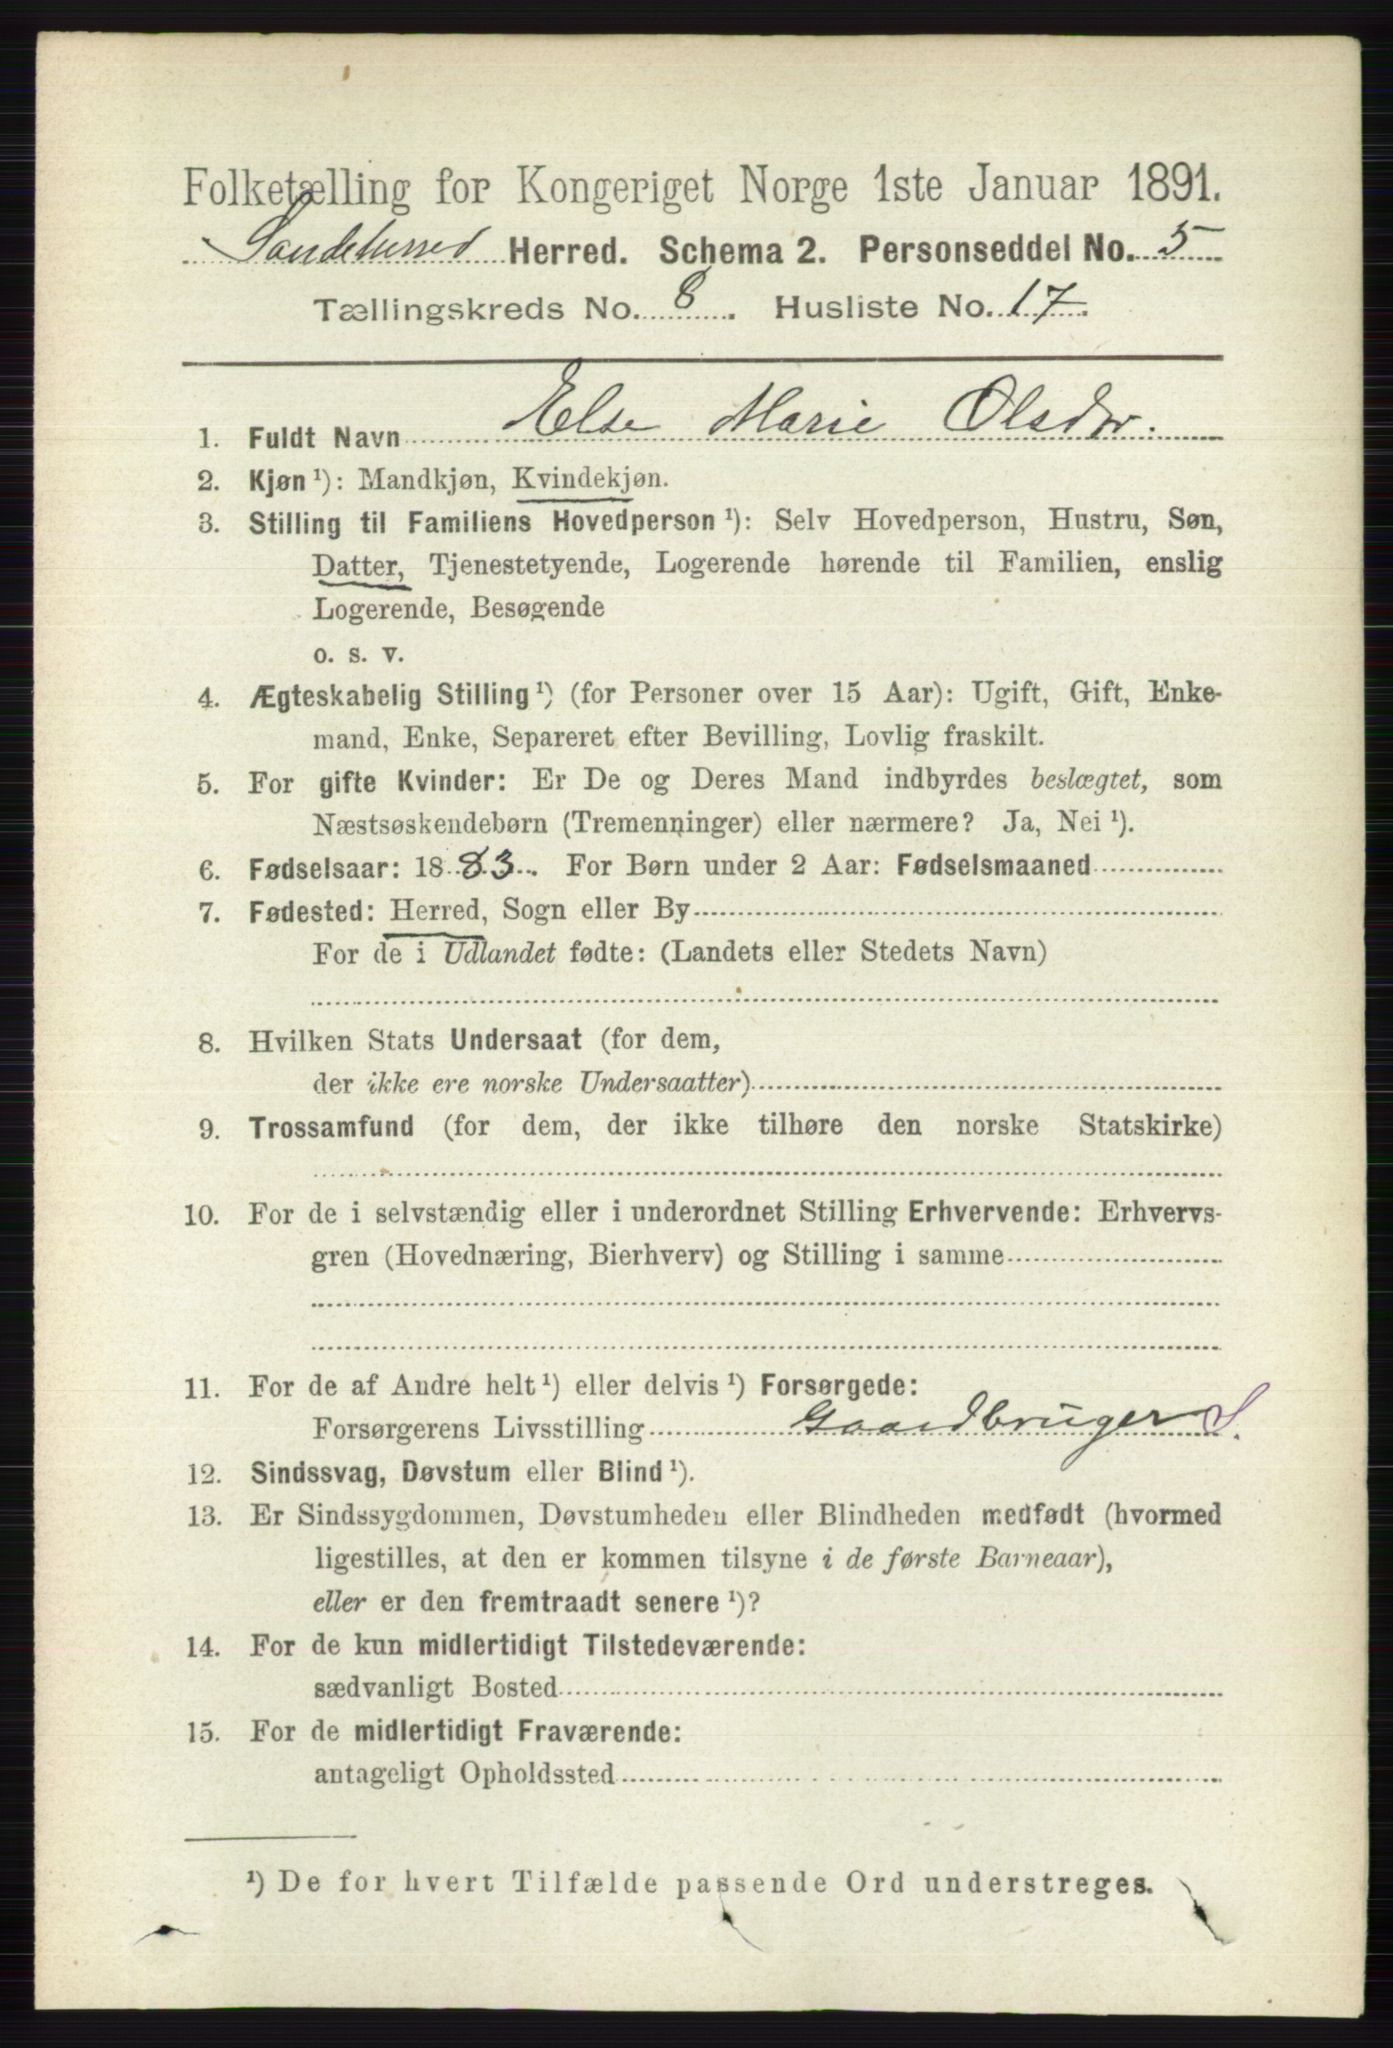 Folketælling for Kongeriget Norge 1ste Januar 1891.
Sandeherred Herred. Schema 2. Personseddel No. 5
Tællingskreds No. 8. Husliste No. 17.
1. Fuldt Navn Else Marie Olsdtr.
2. Kjøn ¹): Mandkjøn, Kvindekjøn.
3. Stilling til Familiens Hovedperson ¹): Selv Hovedperson, Hustru, Søn,
Datter, Tjenestetyende, Logerende hørende til Familien, enslig
Logerende, Besøgende
o. s. v.
4. Ægteskabelig Stilling ¹) (for Personer over 15 Aar): Ugift, Gift, Enke-
mand, Enke, Separeret efter Bevilling, Lovlig fraskilt.
5. For gifte Kvinder: Er De og Deres Mand indbyrdes beslægtet, som
Næstsøskendebørn (Tremenninger) eller nærmere? Ja, Nei ¹).
6. Fødselsaar: 1883. For Børn under 2 Aar: Fødselsmaaned
7. Fødested: Herred, Sogn eller By
For de i Udlandet fødte: (Landets eller Stedets Navn)
8. Hvilken Stats Undersaat (for dem,
der ikke ere norske Undersaatter)
9. Trossamfund (for dem, der ikke tilhøre den norske Statskirke)
10. For de i selvstændig eller i underordnet Stilling Erhvervende: Erhvervs-
gren (Hovednæring, Bierhverv) og Stilling i samme
11. For de af Andre helt ¹) eller delvis ¹) Forsørgede:
Forsørgerens Livsstilling Gaardbruger S.
12. Sindssvag, Døvstum eller Blind ¹).
13. Er Sindssygdommen, Døvstumheden eller Blindheden medfødt (hvormed
ligestilles, at den er kommen tilsyne i de første Barneaar),
eller er den fremtraadt senere ¹)?
14. For de kun midlertidigt Tilstedeværende:
sædvanligt Bosted
15. For de midlertidigt Fraværende:
antageligt Opholdssted
¹) De for hvert Tilfælde passende Ord understreges.